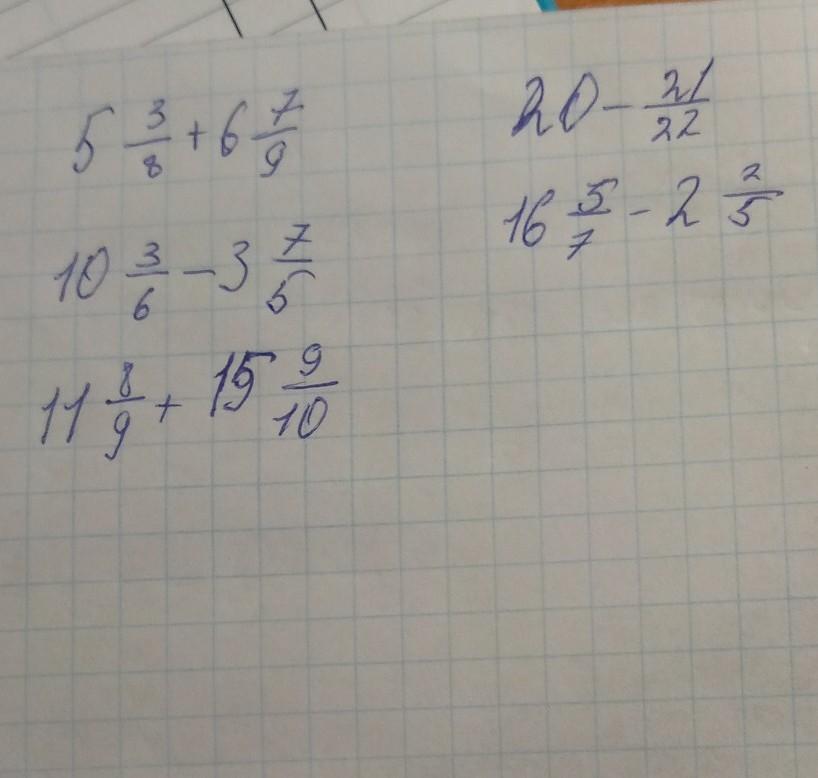 5 3/8 + 6 7/9
10 3/6 - 3 7/5
11 8/9 + 15 9/10
20 - 21/22
16 5/7 - 2 2/5